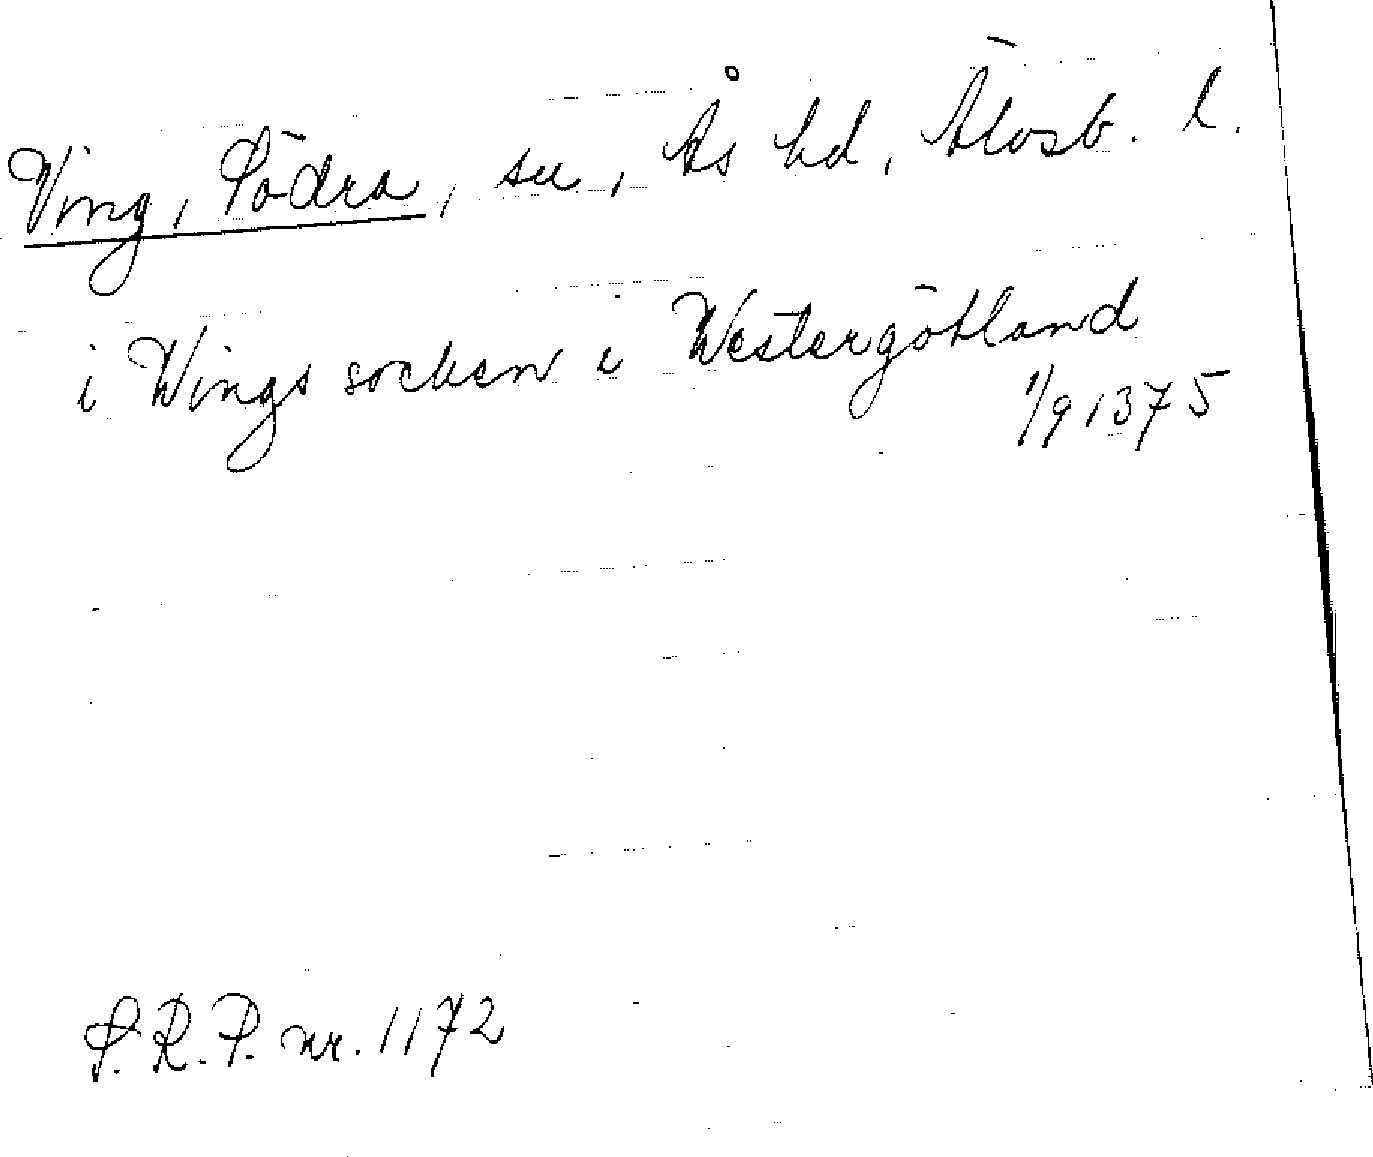 Ving, Södra, sn, Ås hd, Älvsb. l.
i Wings socken i Westergötland
1/9 1375
S.R.P. nr. 1172